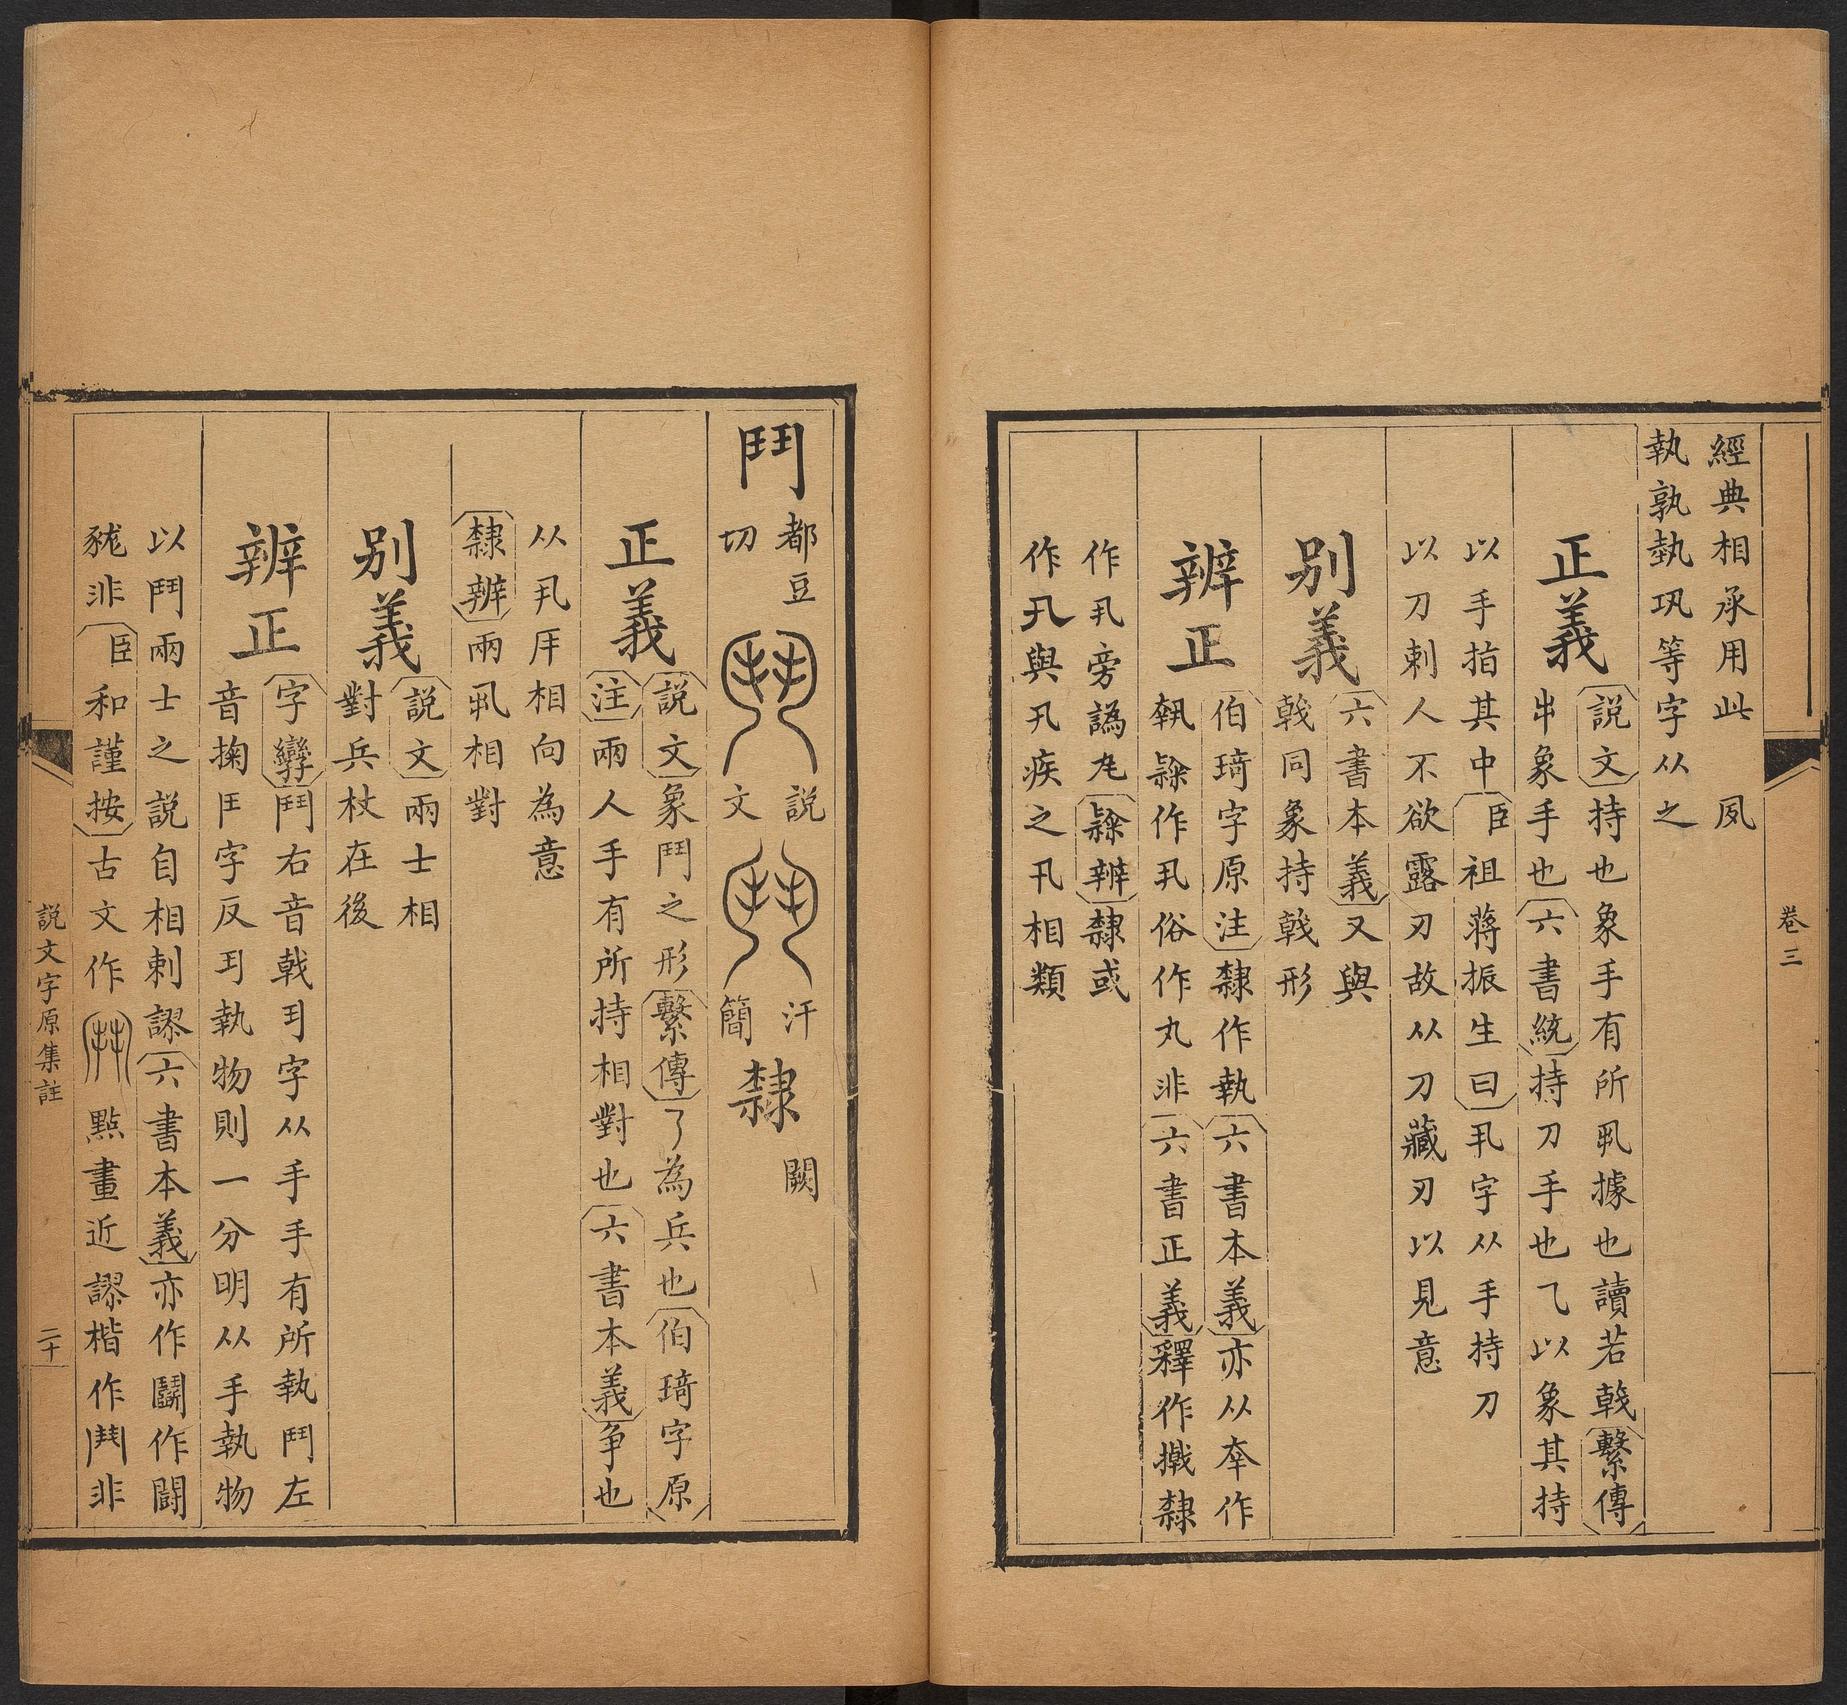 卷三
經典相承用此 夙
執孰埶巩等字从之
正義
説文持也象手有所丮據也讀若㦸繫傳
𢆉象手也六書統持刀手也乁以象其持
以手指其中臣祖蔣振生曰丮字从手持刀
以刀刺人不欲露刃故从刀藏刃以見意
別義
六書本義又與
㦸同象持㦸形
辨正
伯琦字原注隸作執六書本義亦从夲作
隸作丮俗作丸非六書正義釋作撠隸
作丮旁譌𠃨隸辨隸或
作卂與卂疾之卂相類
鬥
都豆
切
説
文
汗
簡
隸
闕
正義
説文象鬥之形繫傳了為兵也伯琦字原
注兩人手有所持相對也六書本義争也
从丮𠨮相向為意
隸辨兩丮相對
別義
説文兩士相
對兵杖在後
辨正
字孿鬥右音㦸字从手手有所執鬥左
音掬字反執物則一分明从手執物
以鬥兩士之説自相剌謬六書本義亦作鬭作鬪
非臣和謹按古文作 點畫近謬楷作非
説文字原集註
二十